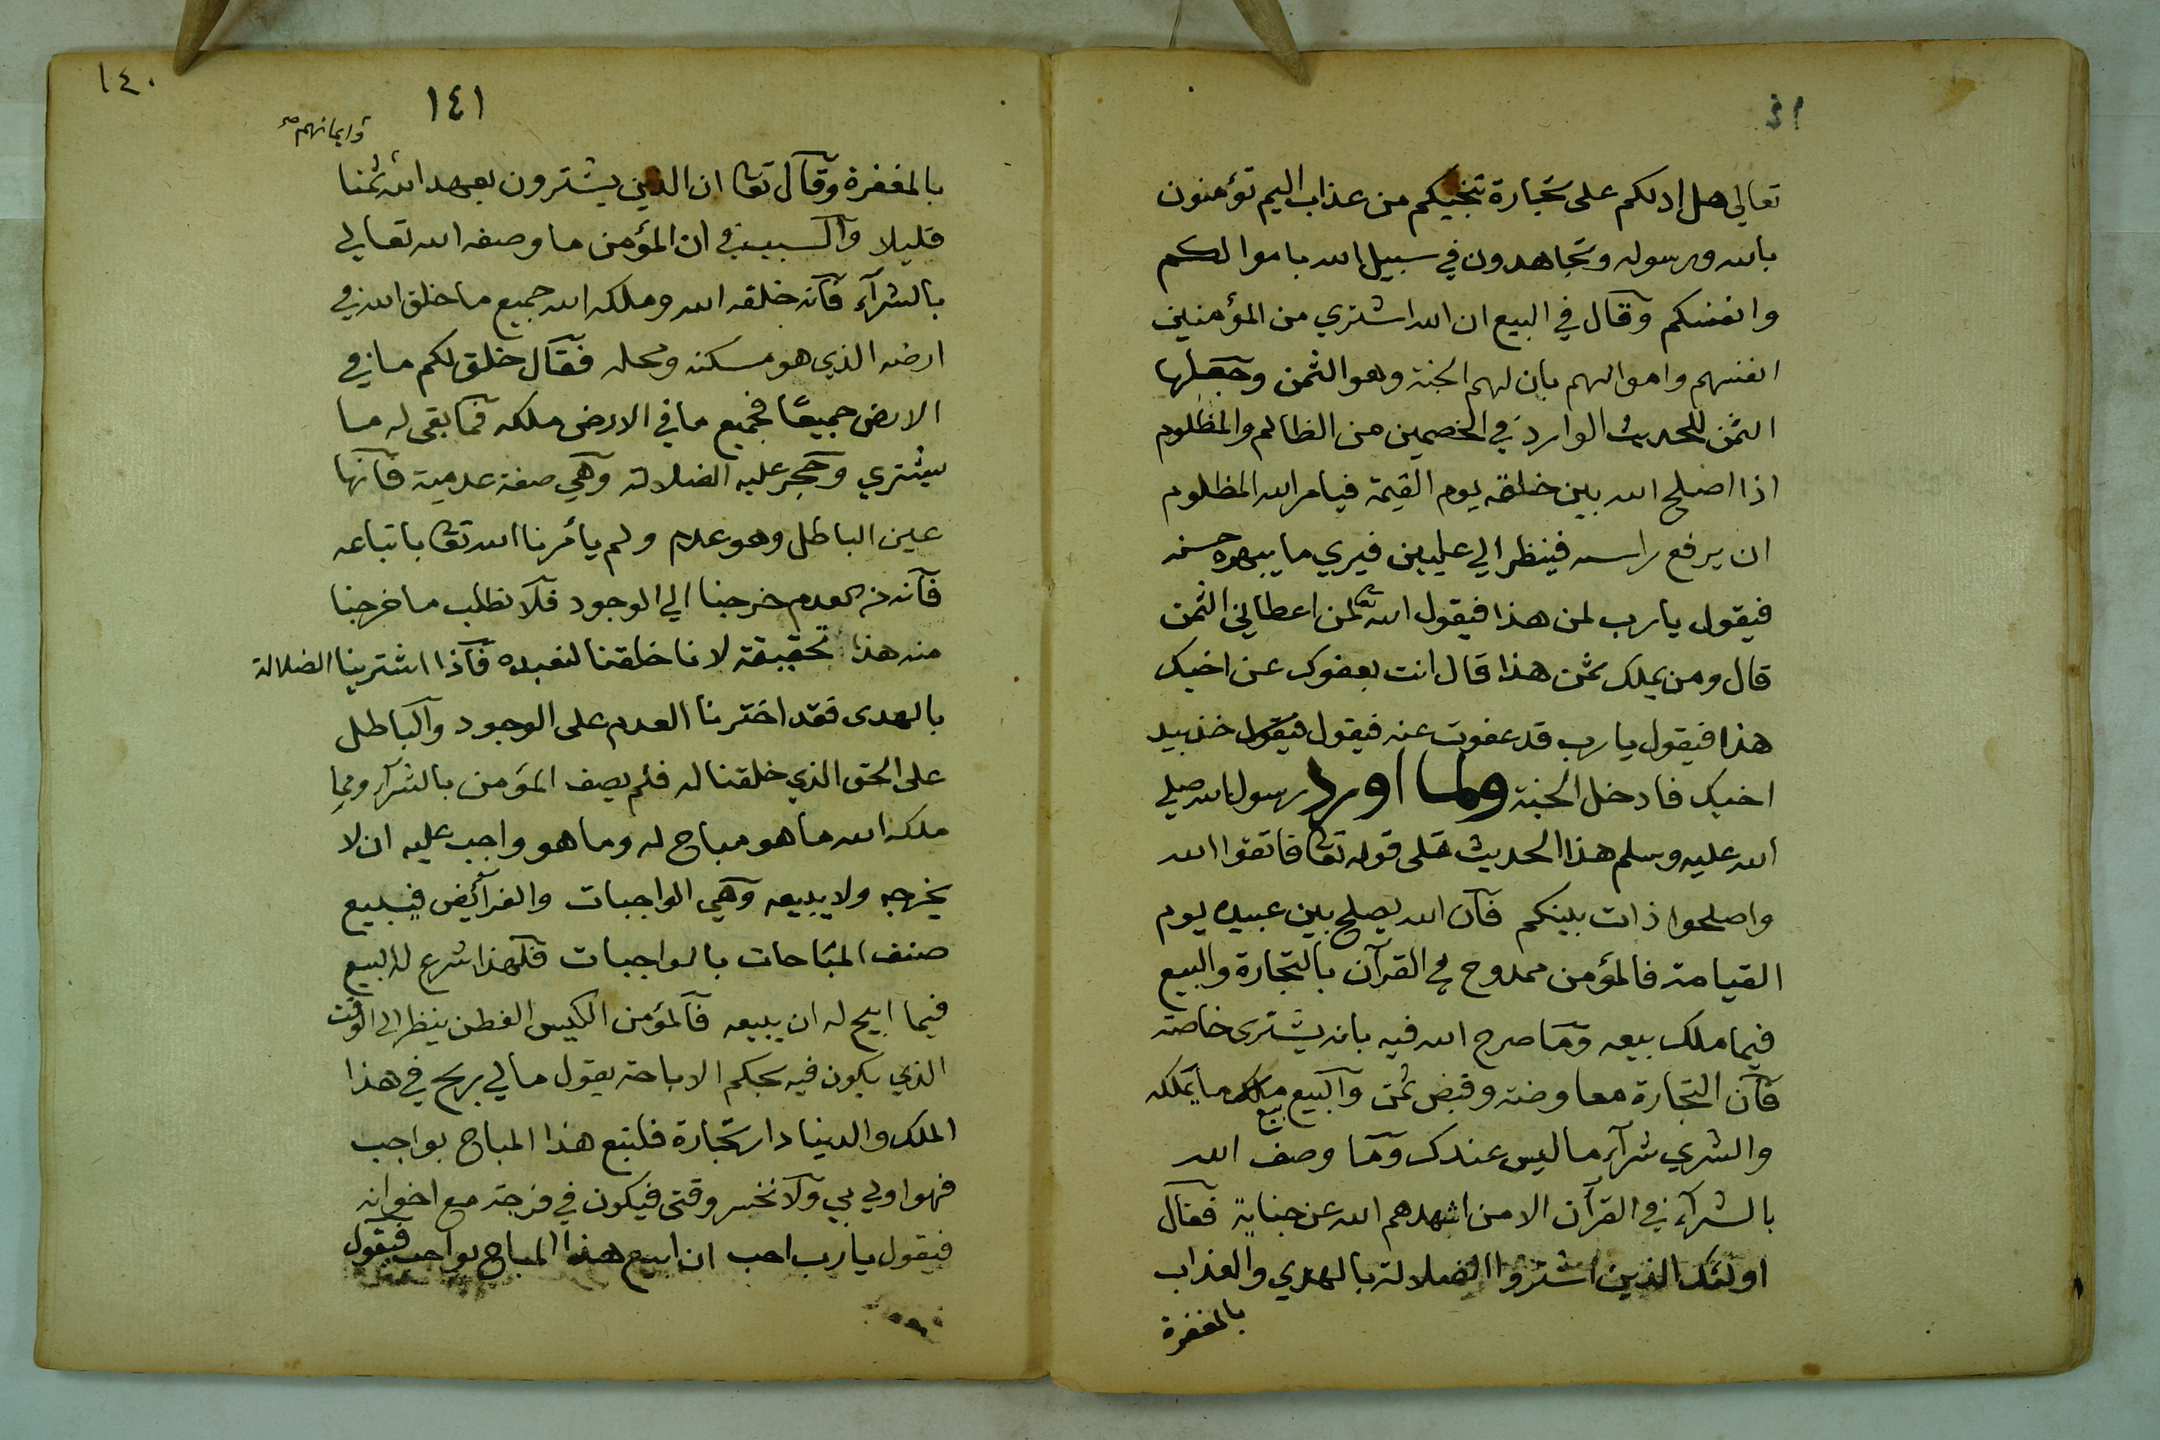 تعالي هل ادلكم على تجارة تنجيكم من عذاب اليم تؤمنون
بالله ورسوله وتجاهدون في سبيل الله باموالكم
وانفسكم وقال في البيع ان الله اشتري من المؤمنين
انفسهم واموالهم بان لهم الجنة وهو الثمن وجعلها
الثمن للحديث الوارد في الخصمين من الظالم والمظلوم
اذا اصلح الله بين خلقه يوم القيمة فيامر الله المظلوم
ان يرفع راسه فينظر الي عليين فيري ما يبهره حسنه
فيقول يا رب لمن هذا فيقول الله تعا لمن اعطاني الثمن
قال ومن يملك ثمن هذا قال انت بعفوك عن اخيك
هذا فيقول يا رب قد عفوت عنه فيقول فيقول خذ بيد
اخيك فادخل الجنة ولما اورد رسول الله صلي
الله عليه وسلم هذا الحديث تلى قوله تعا فاتقوا الله
واصلحوا ذات بينكم فان الله يصلح بين عبيده يوم
القيامة فالمؤمن ممدوح في القرآن بالتجارة والبيع
فيما ملك بيعه وما صرح الله فيه بانه يشترى خاصة
فان التجارة معاوضة وقبض ثمن والبيع بيع ما يملكه
والشري شرآء ما ليس عندك وما وصف الله
بالشرآء في القرآن الا من اشهدهم الله عن جناية فقال
اولئك الذين اشتروا الضلالة بالهدي والعذاب
بالمغفرة
١٤٠
١٤١
وايمانهم صح
بالمغفرة وقال تعا ان الذين يشترون بعهد الله ثمنا
قليلا والسبب في ان المؤمن ما وصفه الله تعالي
بالشرآء فانه خلقه الله وملكه الله جميع ما خلق الله في
ارضه الذي هو مسكنه ومحله فقال خلق لكم ما في
الارض جميعا فجميع ما في الارض ملكه فما بقي له ما
يشتري وحجر عليه الضلالة وهي صفة عدمية فانها
عين الباطل وهو عدم ولم يأمرنا الله تعا باتباعه
فانه من العدم خرجنا الي الوجود فلا نطلب ما خرجنا
منه هذا تحقيقه لانا خلقنا لنعبده فاذا اشترينا الضلالة
بالهدى فقد اخترنا العدم على الوجود والباطل
على الحق الذي خلقنا له فلم يصف المؤمن بالشرآء ومما
ملكه الله ما هو مباح له وما هو واجب عليه ان لا
يخرجه ولا يبيعه وهي الواجبات والفرآئض فيبيع
صنف المباحات بالواجبات فلهذا شرع له البيع
فيما ابيح له ان يبيعه فالمؤمن الكيس الفطن ينظر الى الوقت
الذي يكون فيه بحكم الاباحة يقول ما لي بربح في هذا
الملك والدنيا دار تجارة فلنبع هذا المباح بواجب
فهو اولي بي ولا نخسر وقتي فيكون في فرجة مع اخوانه
فيقول يا رب احب ان ابيع هذا المباح بواجب فيقول